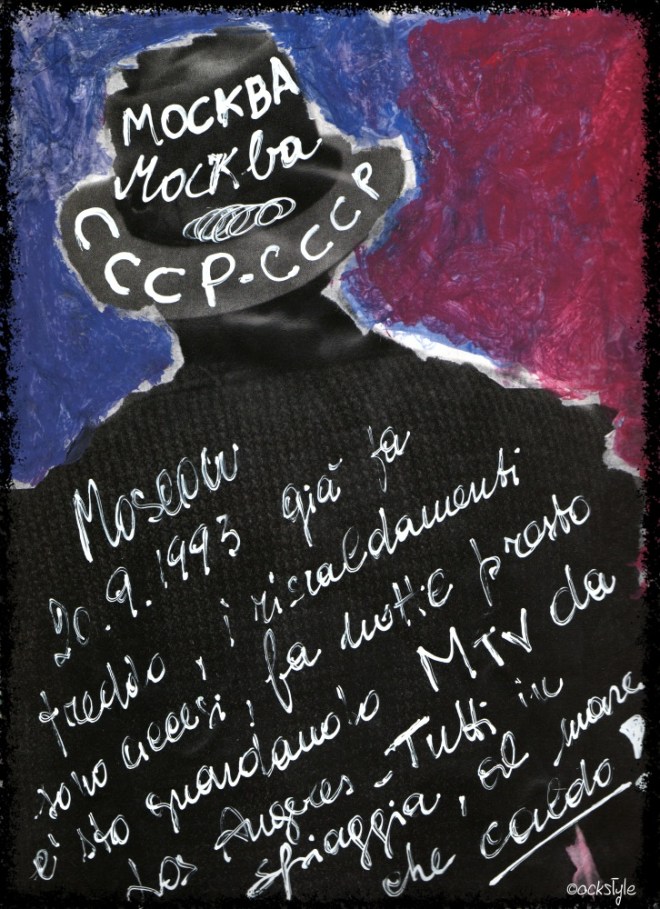 МОСКВА
Москва
СССР-СССР
Moscow
20.9.1993 già fa
freddo, i riscaldamenti
sono accesi, fa notte presto
e sto guardando MTV da
Los Angeles - Tutti in
spiaggia, al mare
che caldo!
©ockstyle